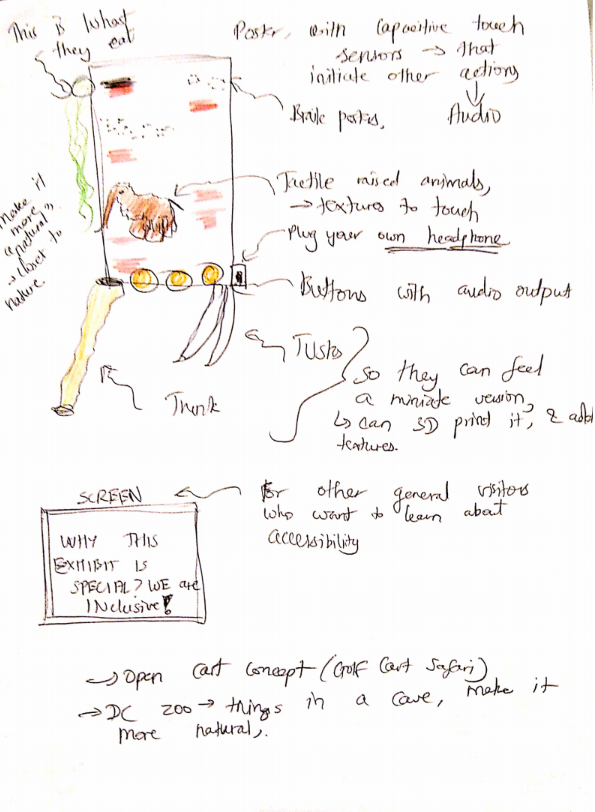 This is what
they eat
Poster, with capacitive touch
sensors → that
initiate other actions
↓
Audio
Braile posters,
Make it
more
"natural"
→ closer to
nature
Tactile raised animals,
→ textures to touch
Plug your own headphone
Buttons with audio output
Tusks
Trunk
So they can feel
a miniate version,
↳ can 3D print it, & add
textures.
SCREEN
For other general visitors
who want to learn about
accessibility
WHY THIS
EXHIBIT IS
SPECIAL? WE are
INclusive!
→ Open cart concept (Golf Cart Safari)
→ DC zoo → things in a cave, make it
more natural,.